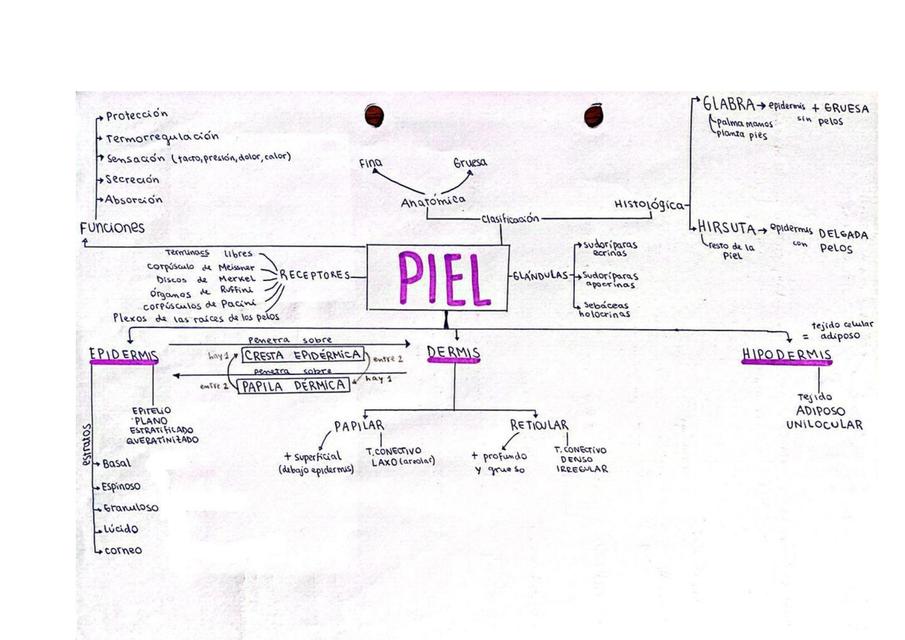 Protección
Termorregulación
Sensación (tacto, presión, dolor, calor)
Secreción
Absorción
Funciones
Fina
Gruesa
Anatómica
Clasificación
Histológica
GLABRA → epidermis + GRUESA
sin pelos
palma manos
planta pies
HIRSUTA → epidermis DELGADA
con PELOS
resto de la
Piel
PIEL
RECEPTORES
Terminacs libres
corpúsculo de Meissner
Discos de Merkel
Órganos de Ruffini
corpúsculos de Pacini
Plexos de las raíces de los pelos
GLÁNDULAS
sudoríparas
ecrinas
sudoríparas
apocrinas
sebáceas
holocrinas
EPIDERMIS
Penetra sobre
hay 1
CRESTA EPIDÉRMICA
entre 2
penetra sobre
entre 2
PAPILA DÉRMICA
hay 1
DERMIS
HIPODERMIS
= tejido celular
adiposo
EPITELIO
PLANO
ESTRATIFICADO
QUERATINIZADO
estratos
Basal
Espinoso
Granuloso
Lúcido
corneo
PAPILAR
+ superficial
(debajo epidermis)
T. CONECTIVO
LAXO (areolar)
RETICULAR
+ profundo
y grueso
T. CONECTIVO
DENSO
IRREGULAR
Tejido
ADIPOSO
UNILOCULAR